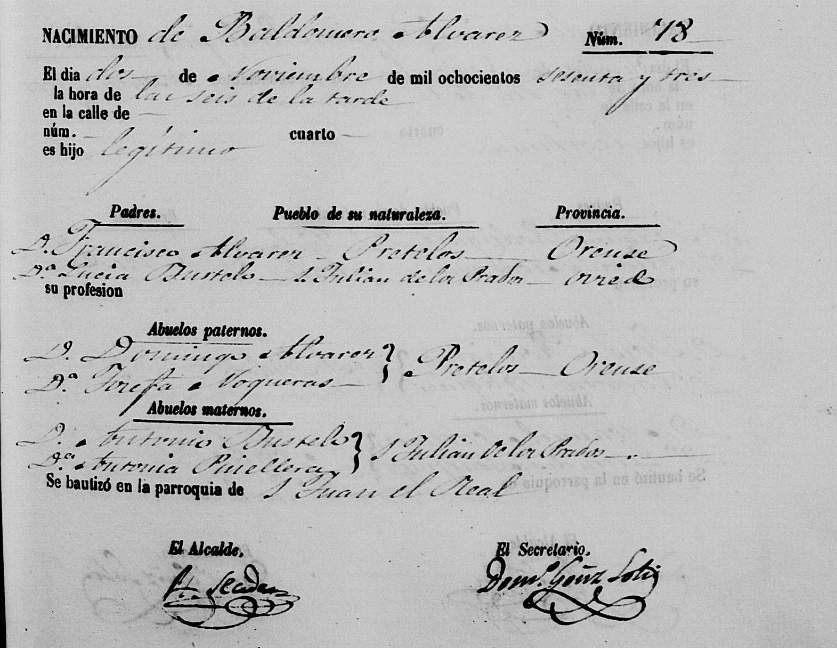 NACIMIENTO de Baldomero Alvarez Núm. 78
El dia dos de Noviembre de mil ochocientos sesenta y tres
la hora de las seis de la tarde
en la calle de —
núm. — cuarto —
es hijo legítimo
Padres. Pueblo de su naturaleza. Provincia.
D. Francisco Alvarez — Pretelos — Orense
D.ª Lucia Bustelo — S. Julian de los Prados — Ovied
su profesion
Abuelos paternos.
D. Domingo Alvarez } Pretelos — Orense
D.ª Josefa Nogueras
Abuelos maternos.
D. Antonio Bustelo } S. Julian de los Prados — .
D.ª Antonia
Se bautizó en la parroquia de S. Juan el Real
El Alcalde, El Secretario,
Dom.º Gonz